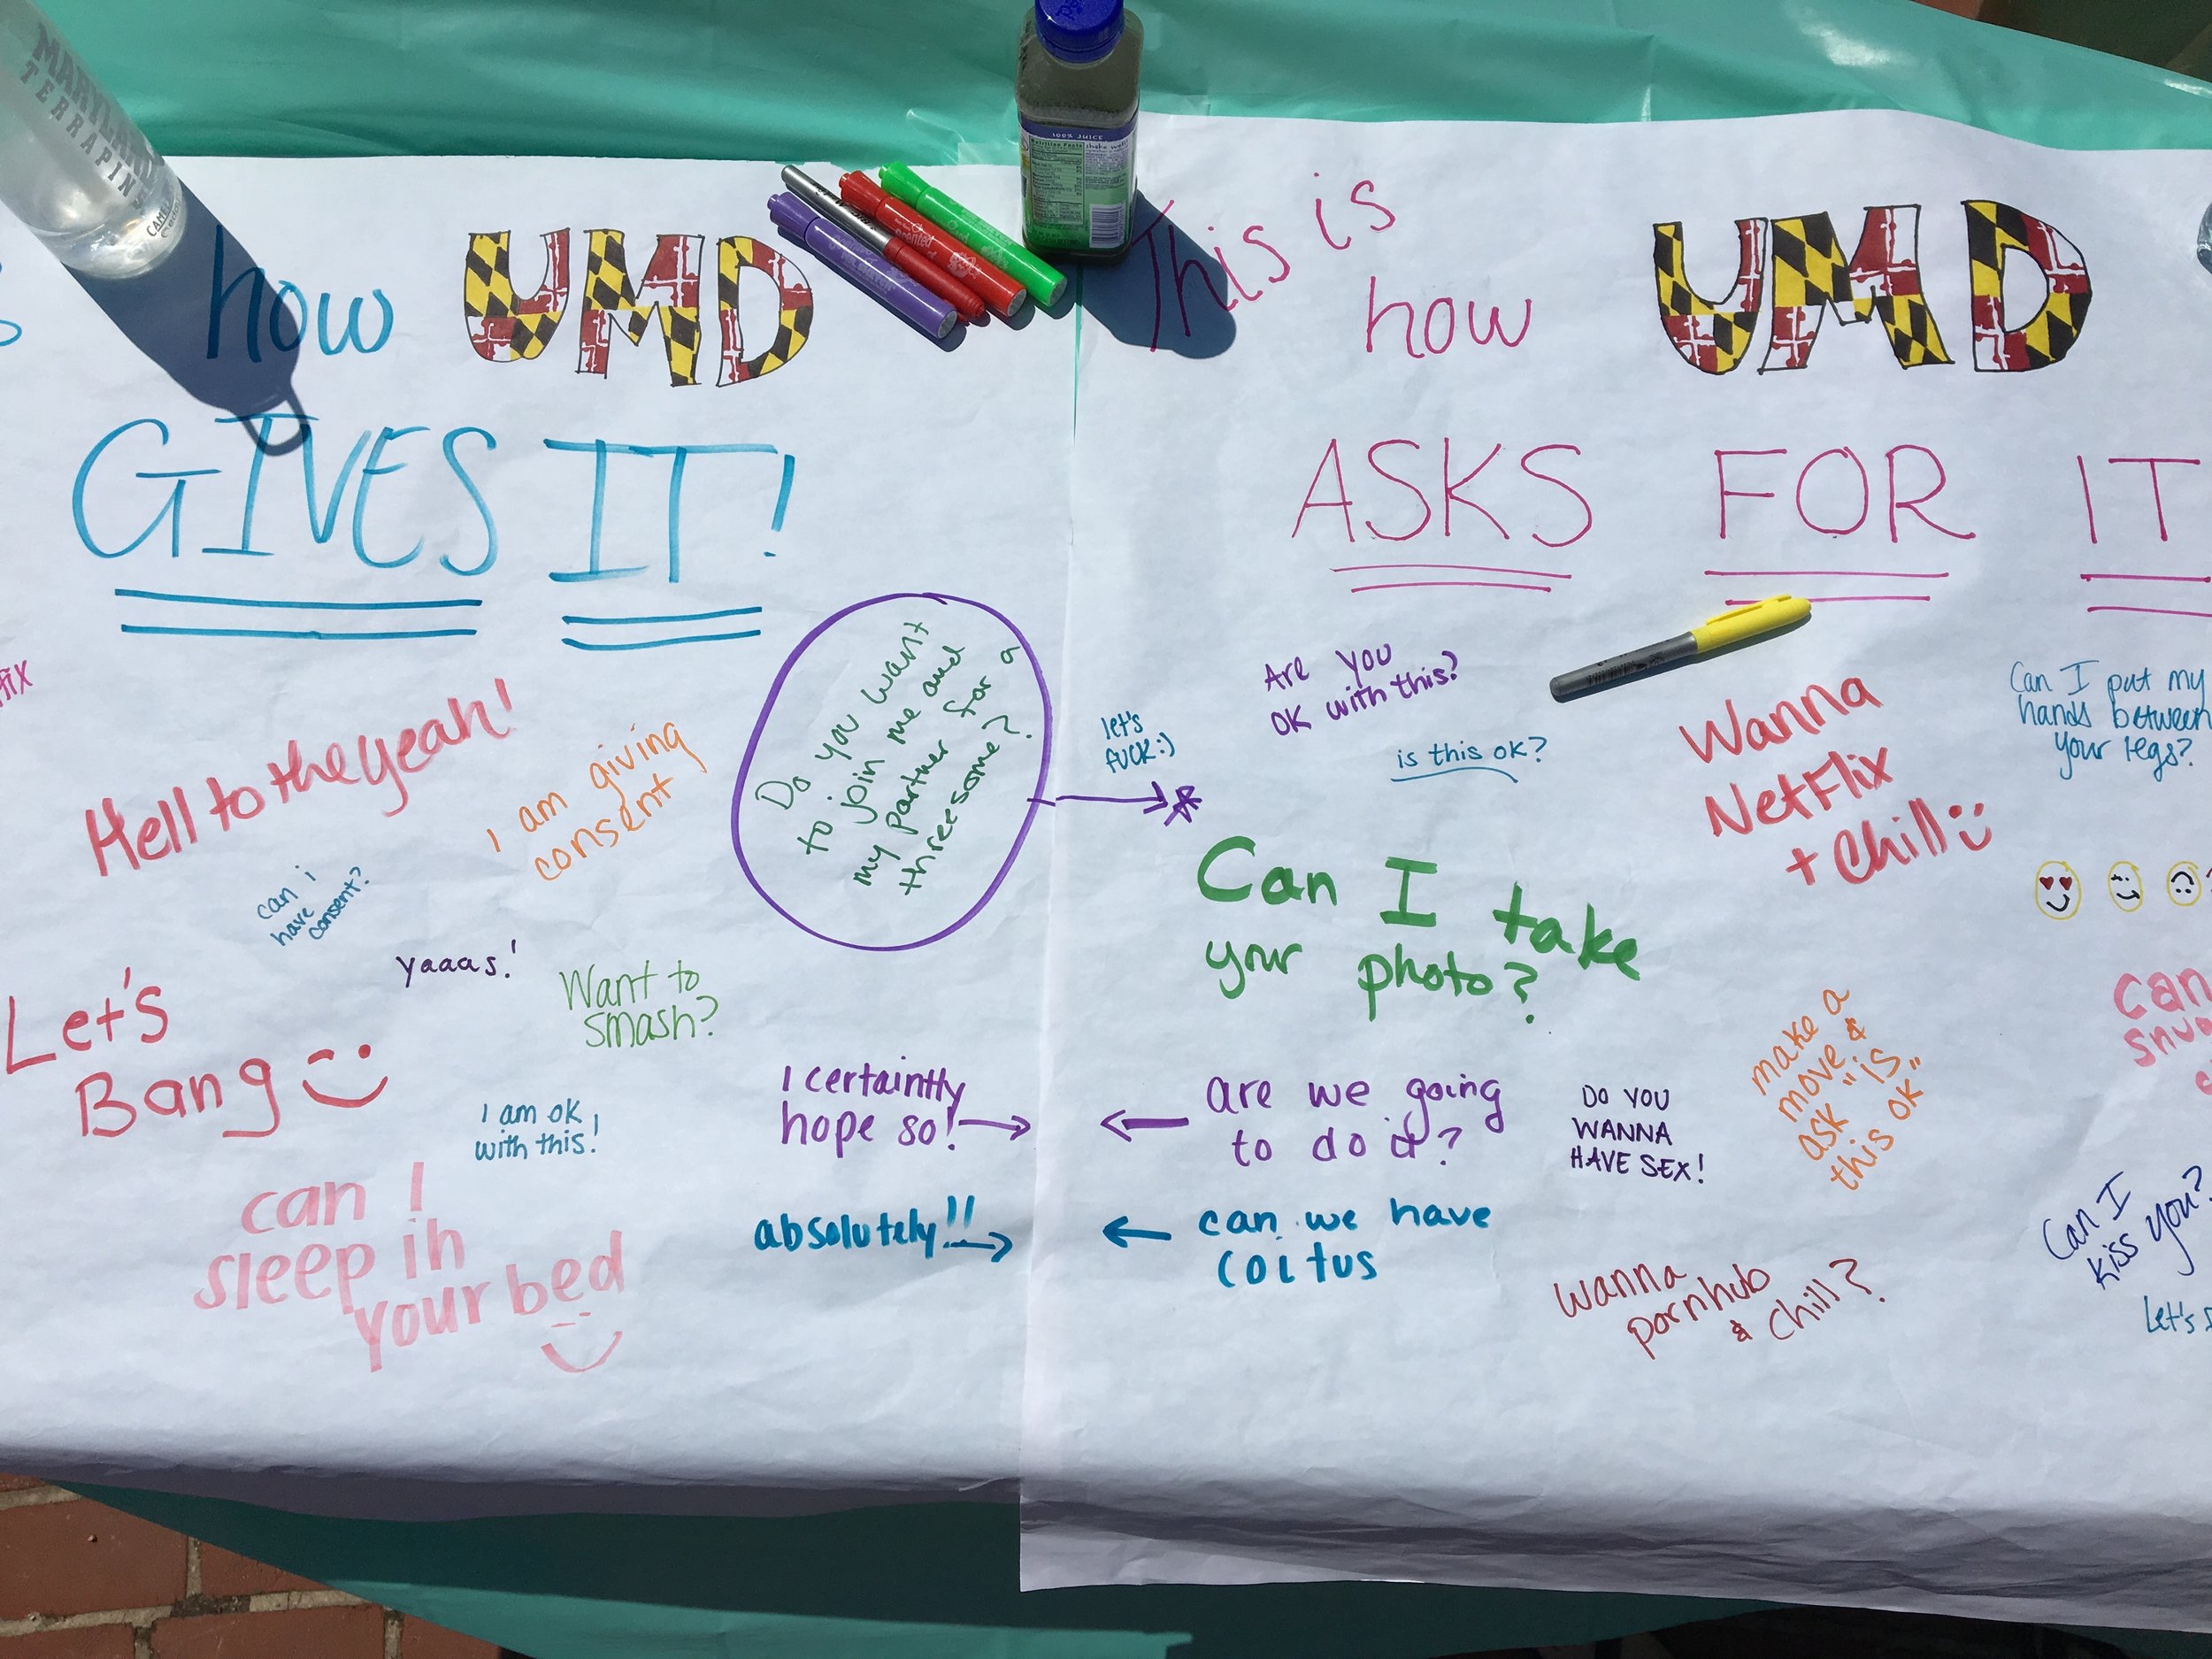 MARYLAND
TERRAPINS
100% JUICE
Nutrition Facts
how UMD
GIVES IT!
Hell to the yeah!
I am giving
consent
can i
have
consent?
yaaas!
Want to
smash?
Let's
Bang
I am ok
with this!
can I
sleep in
your bed
Do you want
to join me and
my partner for a
threesome?
I certaintly
hope so!
absolutely!!
This is
how UMD
ASKS FOR IT
let's
fuck:)
Are you
OK with this?
is this ok?
Wanna
Netflix
+ Chill
Can I put my
hands between
your legs?
Can I take
your photo?
are we going
to do it?
DO YOU
WANNA
HAVE SEX!
make a
move &
ask "is
this ok"
can we have
coitus
wanna
pornhub
& chill?
Can I
kiss you?
Can
Let's